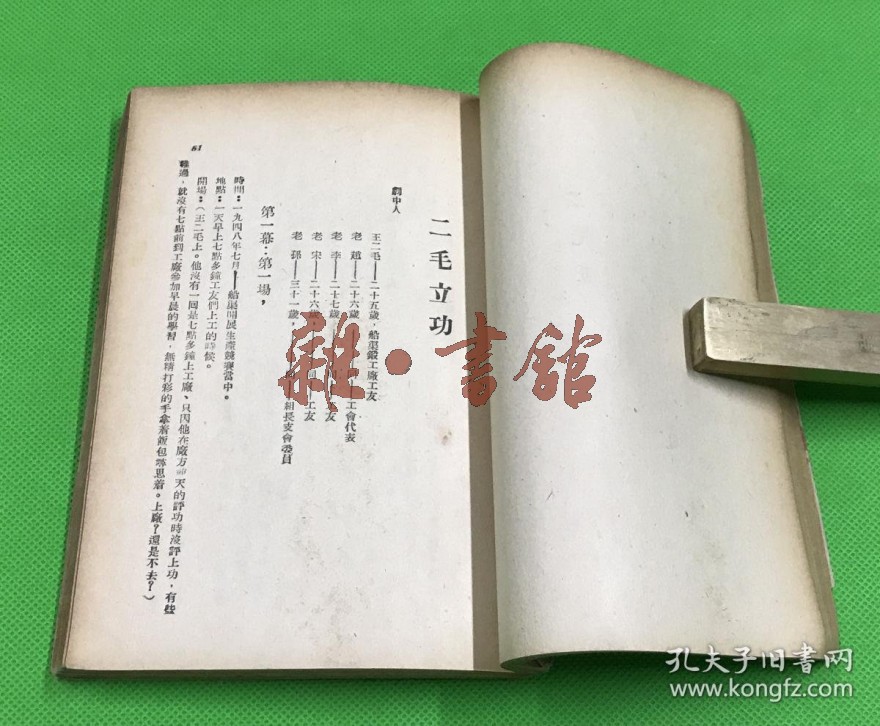 二毛立功
劇中人
王二毛——二十五歲，船渠鍛工廠工友
老 趙——二十六歲 工會代表
老 李——二十七歲 友
老 宋——二十六歲 工友
老 孫——三十一歲， 組長支會委員
第一幕：第一場，
時間：一九四八年七月——船渠開展生產競賽當中。
地點：一天早上七點多鐘工友們上工的時候。
開場：（王二毛上。他沒有一回是七點多鐘上工廠、只因他在廠方 天的評功時沒評上功，有些
難過，就沒有七點前到工廠參加早晨的學習，無精打彩的手拿着飯包 思着。上廠？還是不去？）
51
雜·書館
孔夫子旧書网
www.kongfz.com